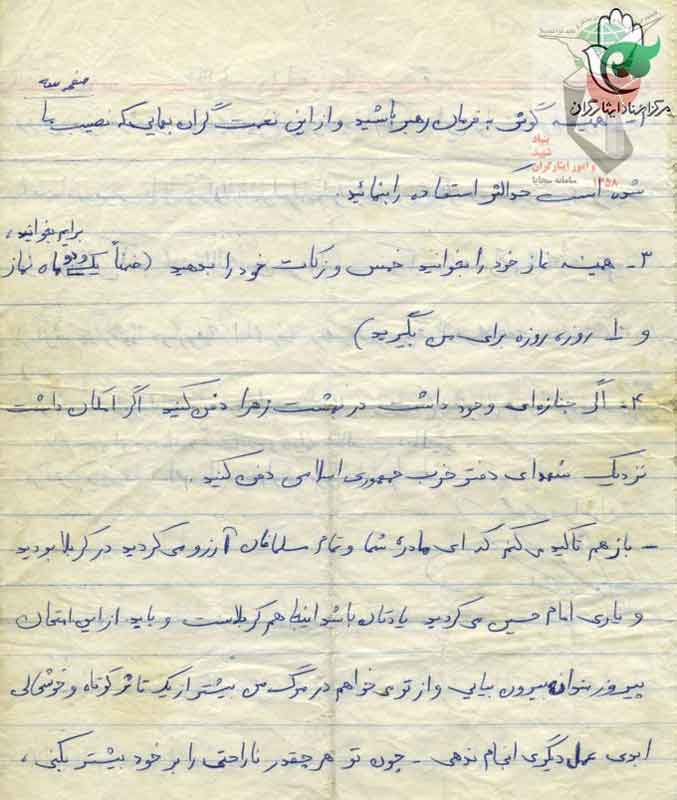 صفحه سه
مرکز اسناد ایثارگران
بنیاد
شهید
و امور ایثارگران
سامانه سجایا
۱۳۵۸
همیشه گوش به فرمان رهبر باشید و از این نعمت گران بهایی که نصیب ما
شده است حداکثر استفاده را بنمائید.
برایم بخوانید،
۳- همیشه نماز خود را بخوانید خمس و زکات خود را بدهید (ضمناً یکی دو ماه نماز
و ۱۰ روزه روزه برای من بگیرید)
۴- اگر جنازه‌ای وجود داشت در بهشت زهرا دفن کنید اگر امکان داشت
نزدیک شهدای دفتر حزب جمهوری اسلامی دفن کنید.
- باز هم تاکید می کنم که ای مادر شما و تمام مسلمانان آرزو می کردید در کربلا بودید
و یاری امام حسین می کردید یادتان باشد اینجا هم کربلاست و باید از این امتحان
پیروز بیرون بیایی و از تو می خواهم در مرگ من بیشتر از یک تاثر کوتاه و خوشحالی
ابدی عمل دیگری انجام ندهی - چون تو هر چقدر ناراحتی را بر خود بیشتر بکنی،